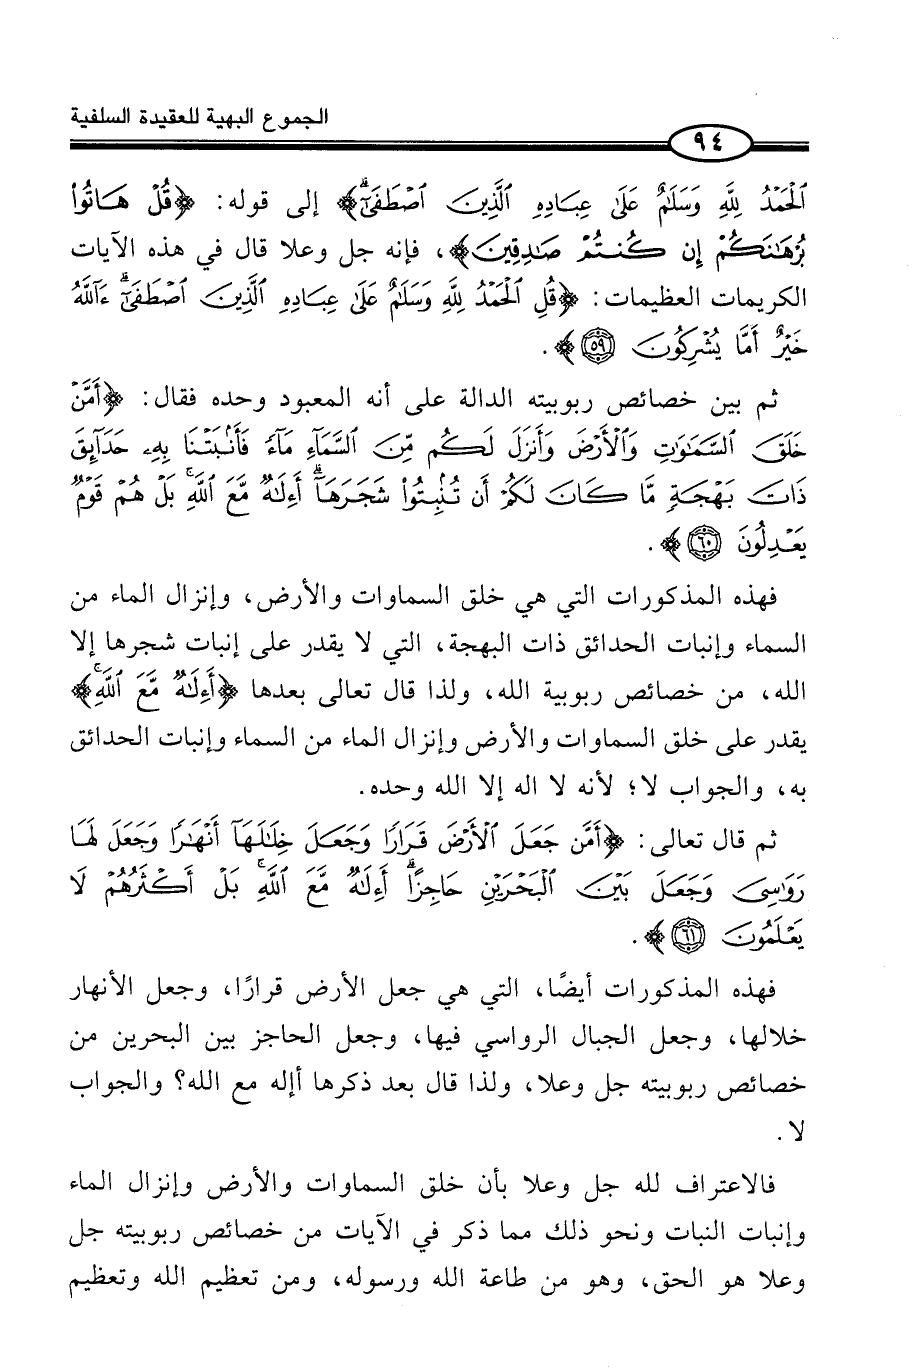 الجموع البهية للعقيدة السلفية
٩٤
ٱلْحَمْدُ لِلَّهِ وَسَلَٰمٌ عَلَىٰ عِبَادِهِ ٱلَّذِينَ ٱصْطَفَىٰٓۗ﴾ إلى قوله: ﴿قُلْ هَاتُوا۟
بُرْهَٰنَكُمْ إِن كُنتُمْ صَٰدِقِينَ﴾، فإنه جل وعلا قال في هذه الآيات
الكريمات العظيمات: ﴿قُلِ ٱلْحَمْدُ لِلَّهِ وَسَلَٰمٌ عَلَىٰ عِبَادِهِ ٱلَّذِينَ ٱصْطَفَىٰٓۗ ءَآللَّهُ
خَيْرٌ أَمَّا يُشْرِكُونَ ٥٩﴾.
ثم بين خصائص ربوبيته الدالة على أنه المعبود وحده فقال: ﴿أَمَّنْ
خَلَقَ ٱلسَّمَٰوَٰتِ وَٱلْأَرْضَ وَأَنزَلَ لَكُم مِّنَ ٱلسَّمَآءِ مَآءً فَأَنۢبَتْنَا بِهِۦ حَدَآئِقَ
ذَاتَ بَهْجَةٍ مَّا كَانَ لَكُمْ أَن تُنۢبِتُوا۟ شَجَرَهَآۗ أَءِلَٰهٌ مَّعَ ٱللَّهِۚ بَلْ هُمْ قَوْمٌ
يَعْدِلُونَ ٦٠﴾.
فهذه المذكورات التي هي خلق السماوات والأرض، وإنزال الماء من
السماء وإنبات الحدائق ذات البهجة، التي لا يقدر على إنبات شجرها إلا
الله، من خصائص ربوبية الله، ولذا قال تعالى بعدها ﴿أَءِلَٰهٌ مَّعَ ٱللَّهِۚ﴾
يقدر على خلق السماوات والأرض وإنزال الماء من السماء وإنبات الحدائق
به، والجواب لا؛ لأنه لا اله إلا الله وحده.
ثم قال تعالى: ﴿أَمَّن جَعَلَ ٱلْأَرْضَ قَرَارًا وَجَعَلَ خِلَٰلَهَآ أَنْهَٰرًا وَجَعَلَ لَهَا
رَوَٰسِىَ وَجَعَلَ بَيْنَ ٱلْبَحْرَيْنِ حَاجِزًاۗ أَءِلَٰهٌ مَّعَ ٱللَّهِۚ بَلْ أَكْثَرُهُمْ لَا
يَعْلَمُونَ ٦١﴾.
فهذه المذكورات أيضًا، التي هي جعل الأرض قرارًا، وجعل الأنهار
خلالها، وجعل الجبال الرواسي فيها، وجعل الحاجز بين البحرين من
خصائص ربوبيته جل وعلا، ولذا قال بعد ذكرها أإله مع الله؟ والجواب
لا.
فالاعتراف لله جل وعلا بأن خلق السماوات والأرض وإنزال الماء
وإنبات النبات ونحو ذلك مما ذكر في الآيات من خصائص ربوبيته جل
وعلا هو الحق، وهو من طاعة الله ورسوله، ومن تعظيم الله وتعظيم